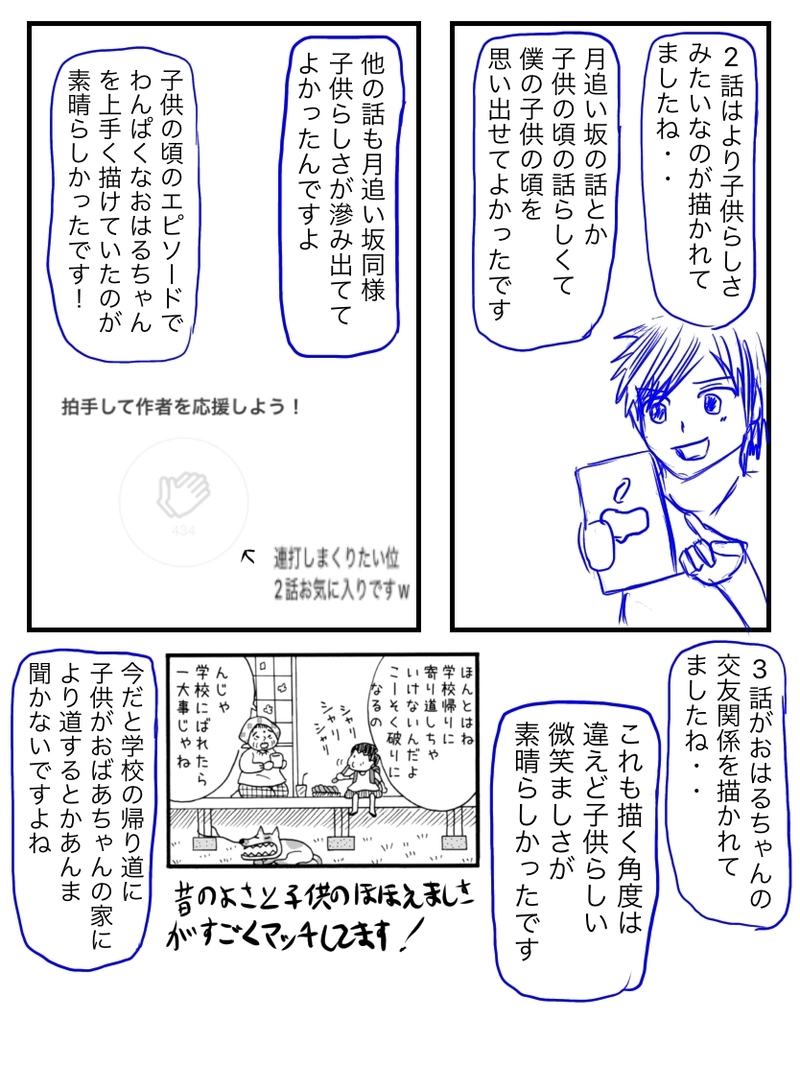 2話はより子供らしさ
みたいなのが描かれて
ましたね・・
月追い坂の話とか
子供の頃の話らしくて
僕の子供の頃を
思い出せてよかったです
他の話も月追い坂同様
子供らしさが滲み出てて
よかったんですよ
子供の頃のエピソードで
わんぱくなおはるちゃん
を上手く描けていたのが
素晴らしかったです！
拍手して作者を応援しよう！
434
連打しまくりたい位
2話お気に入りですｗ
3話がおはるちゃんの
交友関係を描かれて
ましたね・・
これも描く角度は
違えど子供らしい
微笑ましさが
素晴らしかったです
ほんとはね
学校帰りに
寄り道しちゃ
いけないんだよ
こーそく破りに
なるの
シャリ
シャリ
シャリ
んじゃ
学校にばれたら
一大事じゃね
昔のよさと子供のほほえましさ
がすごくマッチしてます！
今だと学校の帰り道に
子供がおばあちゃんの家に
より道するとかあんま
聞かないですよね